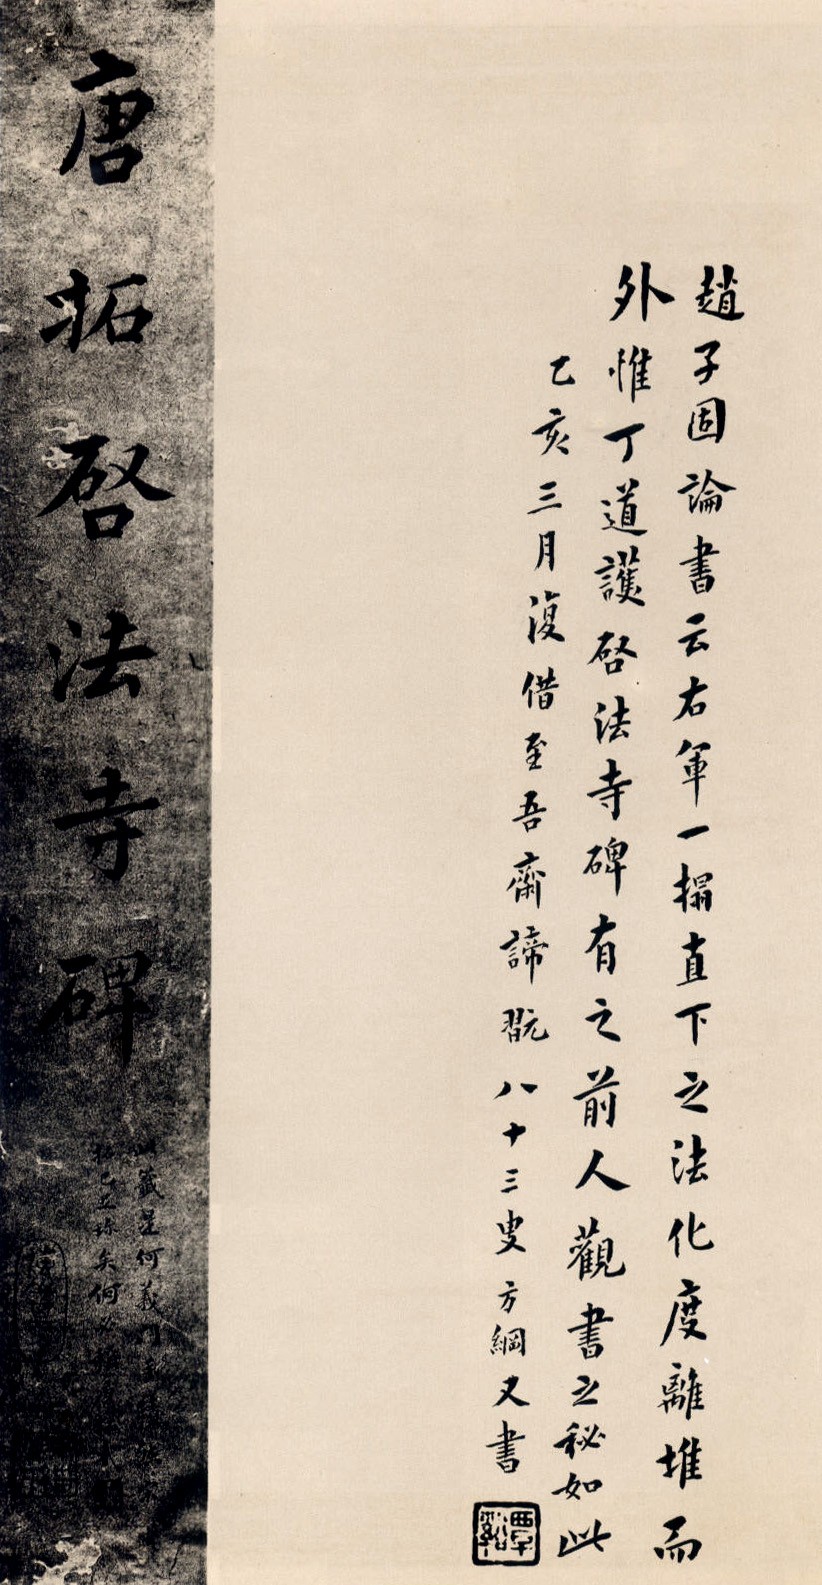 趙子固論書云右軍一搨直下之法化度離堆而
外惟丁道護啓法寺碑有之前人觀書之秘如此
乙亥三月復借至吾齋諦翫八十三叟方綱又書
覃谿
唐拓啓法寺碑
籤是何義門